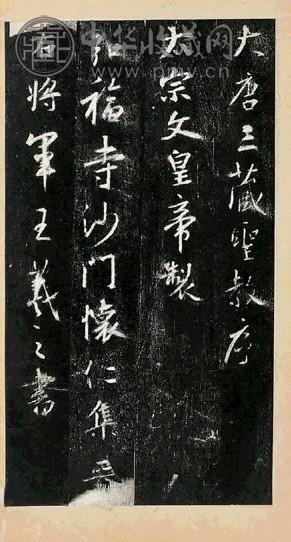 大唐三藏聖教序
太宗文皇帝製
弘福寺沙門懷仁集晉
右將軍王羲之書
中华收藏网
www.pmcv.cn